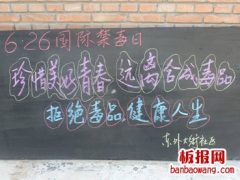 6·26国际禁毒日
珍惜美好青春、远离合成毒品
拒绝毒品,健康人生
东外大街社区
板报网
www.banbao.com